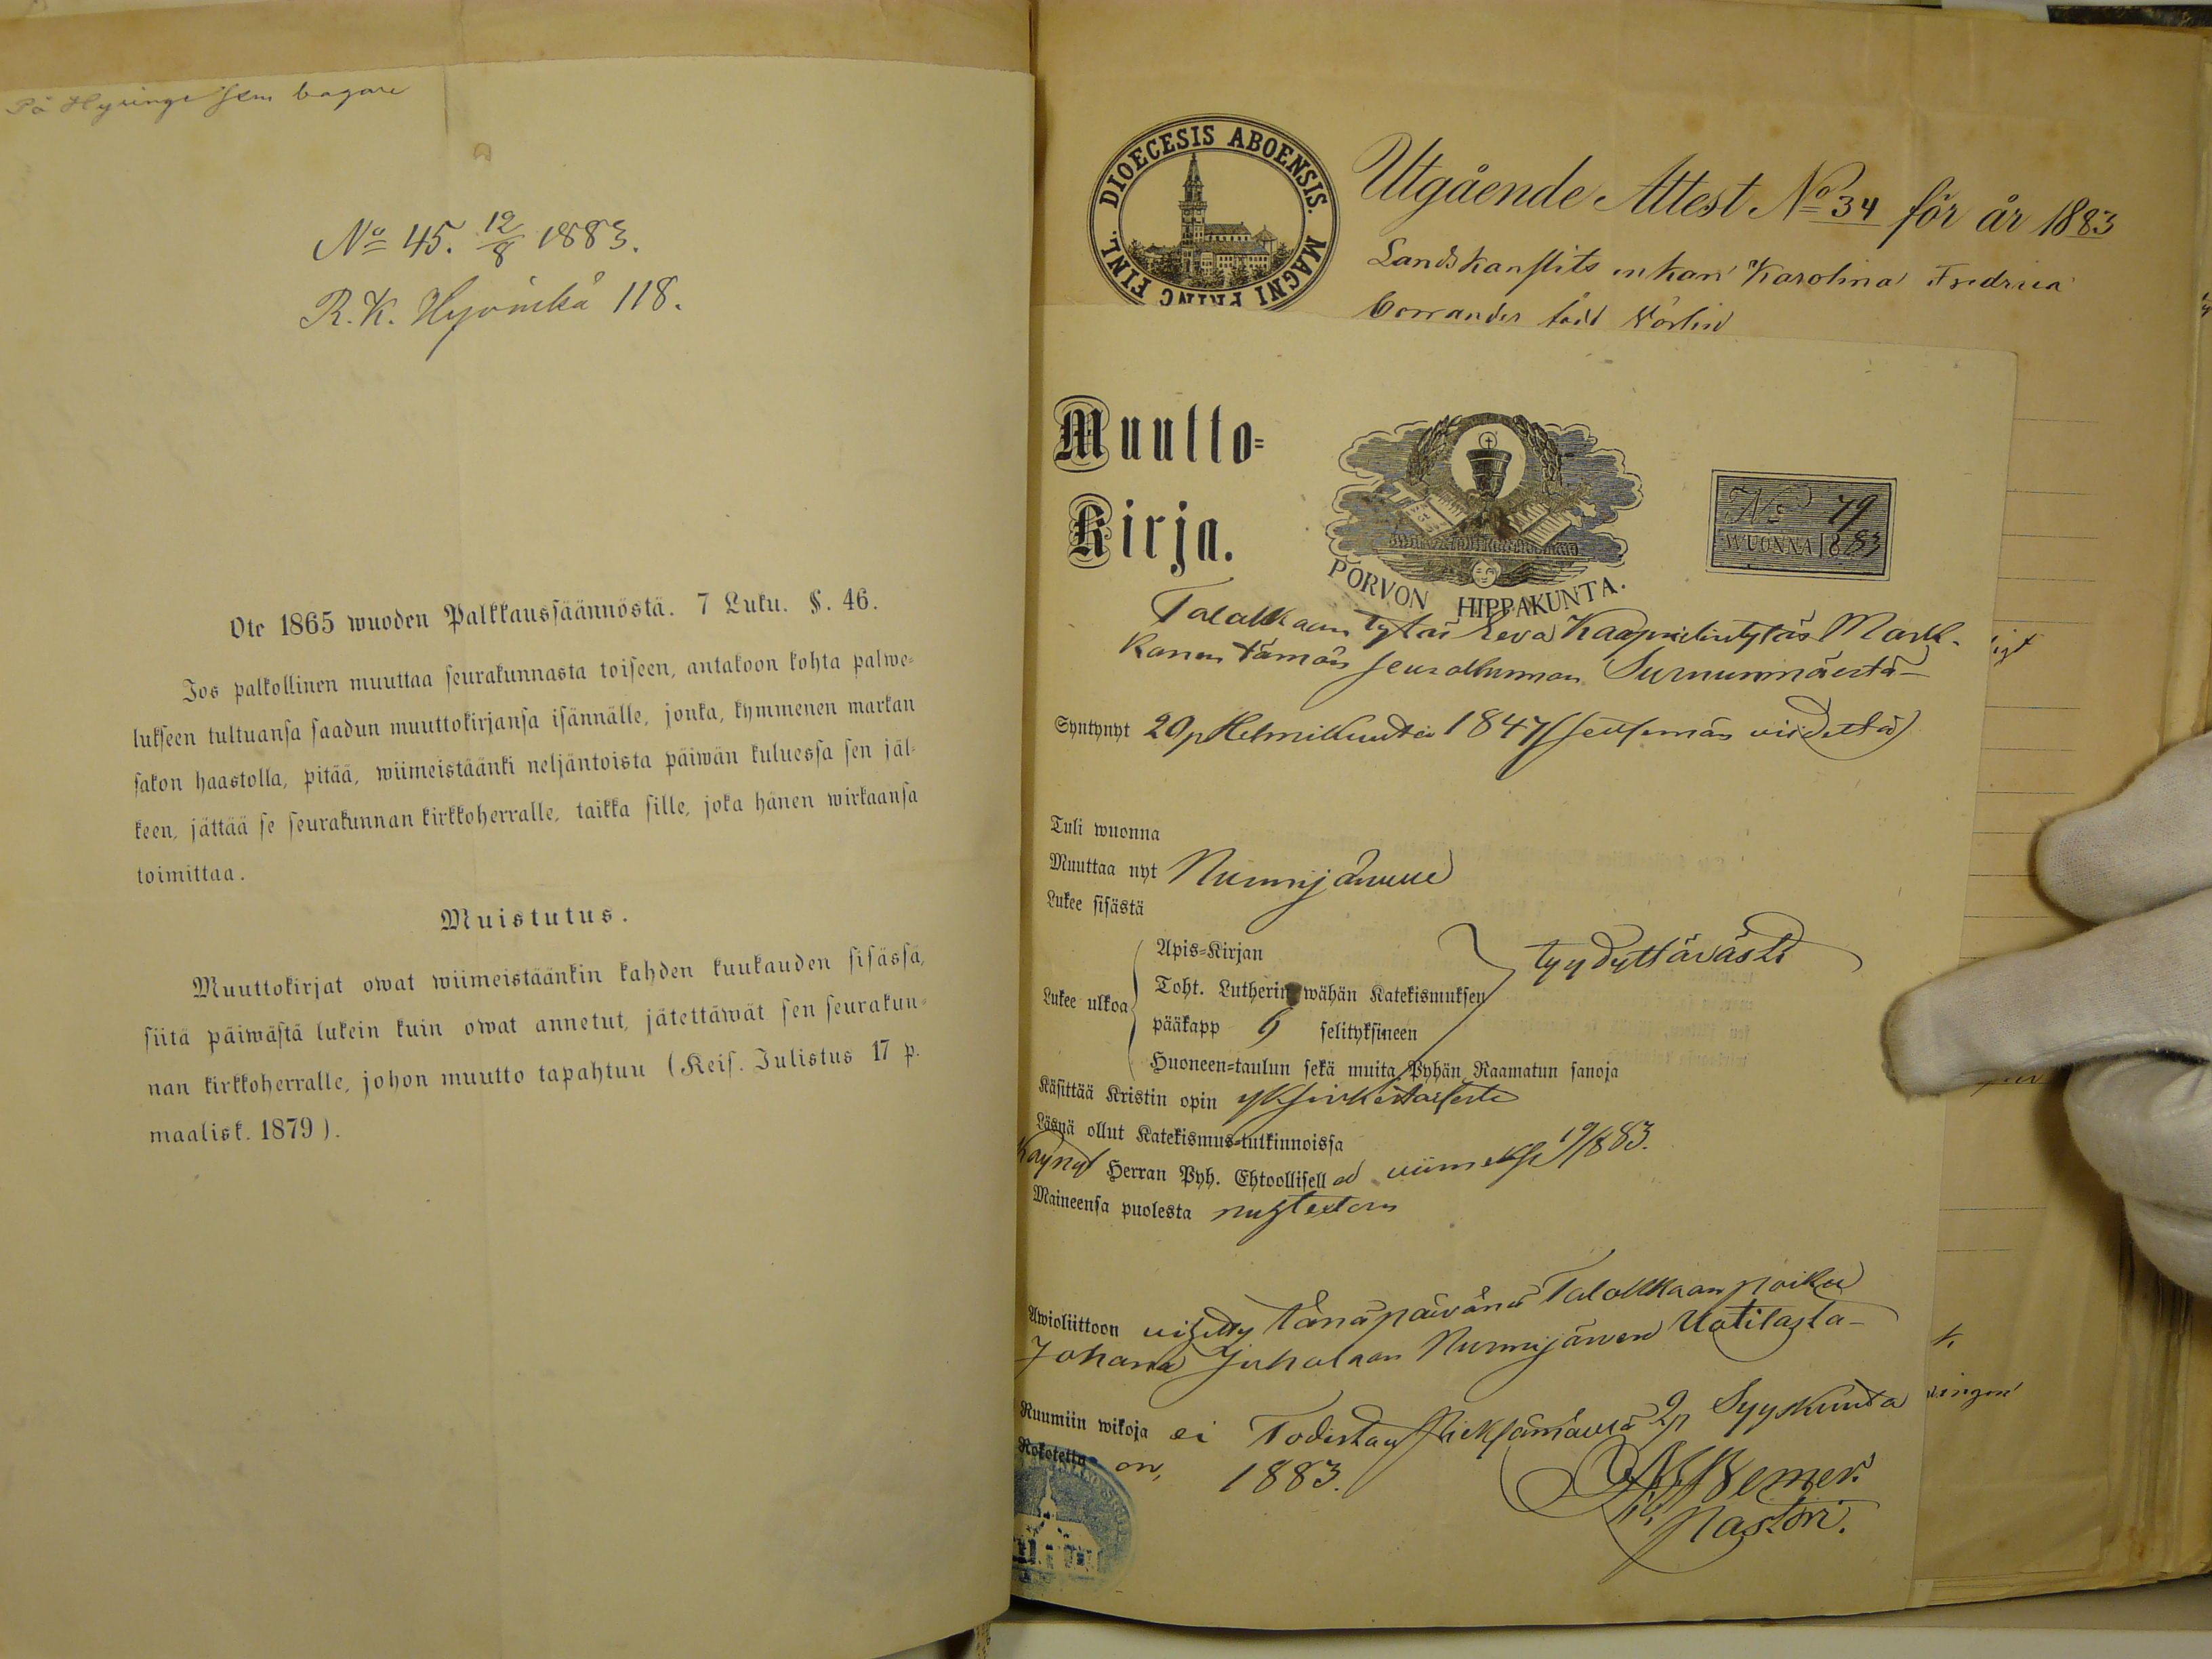 På Hyvinge som bagare
No 45. 12/8 1883.
R. K. Hyvinkå 118.
Ote 1865 wuoden Palkkaussäännöstä. 7 Luku. §. 46.
Jos palkollinen muuttaa seurakunnasta toiseen, antakoon kohta palwe-
lukseen tultuansa saadun muuttokirjansa isännälle, jonka, kymmenen markan
sakon haastolla, pitää, wiimeistäänki neljäntoista päiwän kuluessa sen jäl-
keen, jättää se seurakunnan kirkkoherralle, taikka sille, joka hänen wirkaansa
toimittaa.
Muistutus.
Muuttokirjat owat wiimeistäänkin kahden kuukauden sisässä,
siitä päiwästä lukein kuin owat annetut, jätettäwät sen seurakun-
nan kirkkoherralle, johon muutto tapahtuu (Keis. Julistus 17 p.
maalisk. 1879).
DIOECESIS ABOENSIS. MAGNI PRINC FINL.
Utgående Attest No 34 för år 1883
Karolina
född
Muutto-
Kirja.
PORVON HIPPAKUNTA.
No 79
WUONNA 1883
Talokkaan tytär Eeva Mark-
kanen tämän seurakunnan
Syntynyt 20 p Helmikuuta 1847 (seitsemän viidettä)
Tuli wuonna
Muuttaa nyt Nurmijärvelle
Lukee sisästä
Lukee ulkoa
Apis-Kirjan
tyydyttävästi
Toht. Lutherin wähän Katekismuksen
pääkapp selityksineen
Huoneen-taulun sekä muita Pyhän Raamatun sanoja
Käsittää Kristin opin yksinkertaisesti
Läsnä ollut Katekismus-tulkinnoissa
Käynyt Herran Pyh. Ehtoollisella viimeksi 19/8 83.
Maineensa puolesta nuhteeton
Awioliittoon vihitty tänäpäivänä Talokkaan poika
Johana Juholaan Nurmijärven Uotilasta
Ruumiin wikoja ei Todistaa 2 p Syyskuuta
Rokotettu on, 1883.
pastori.